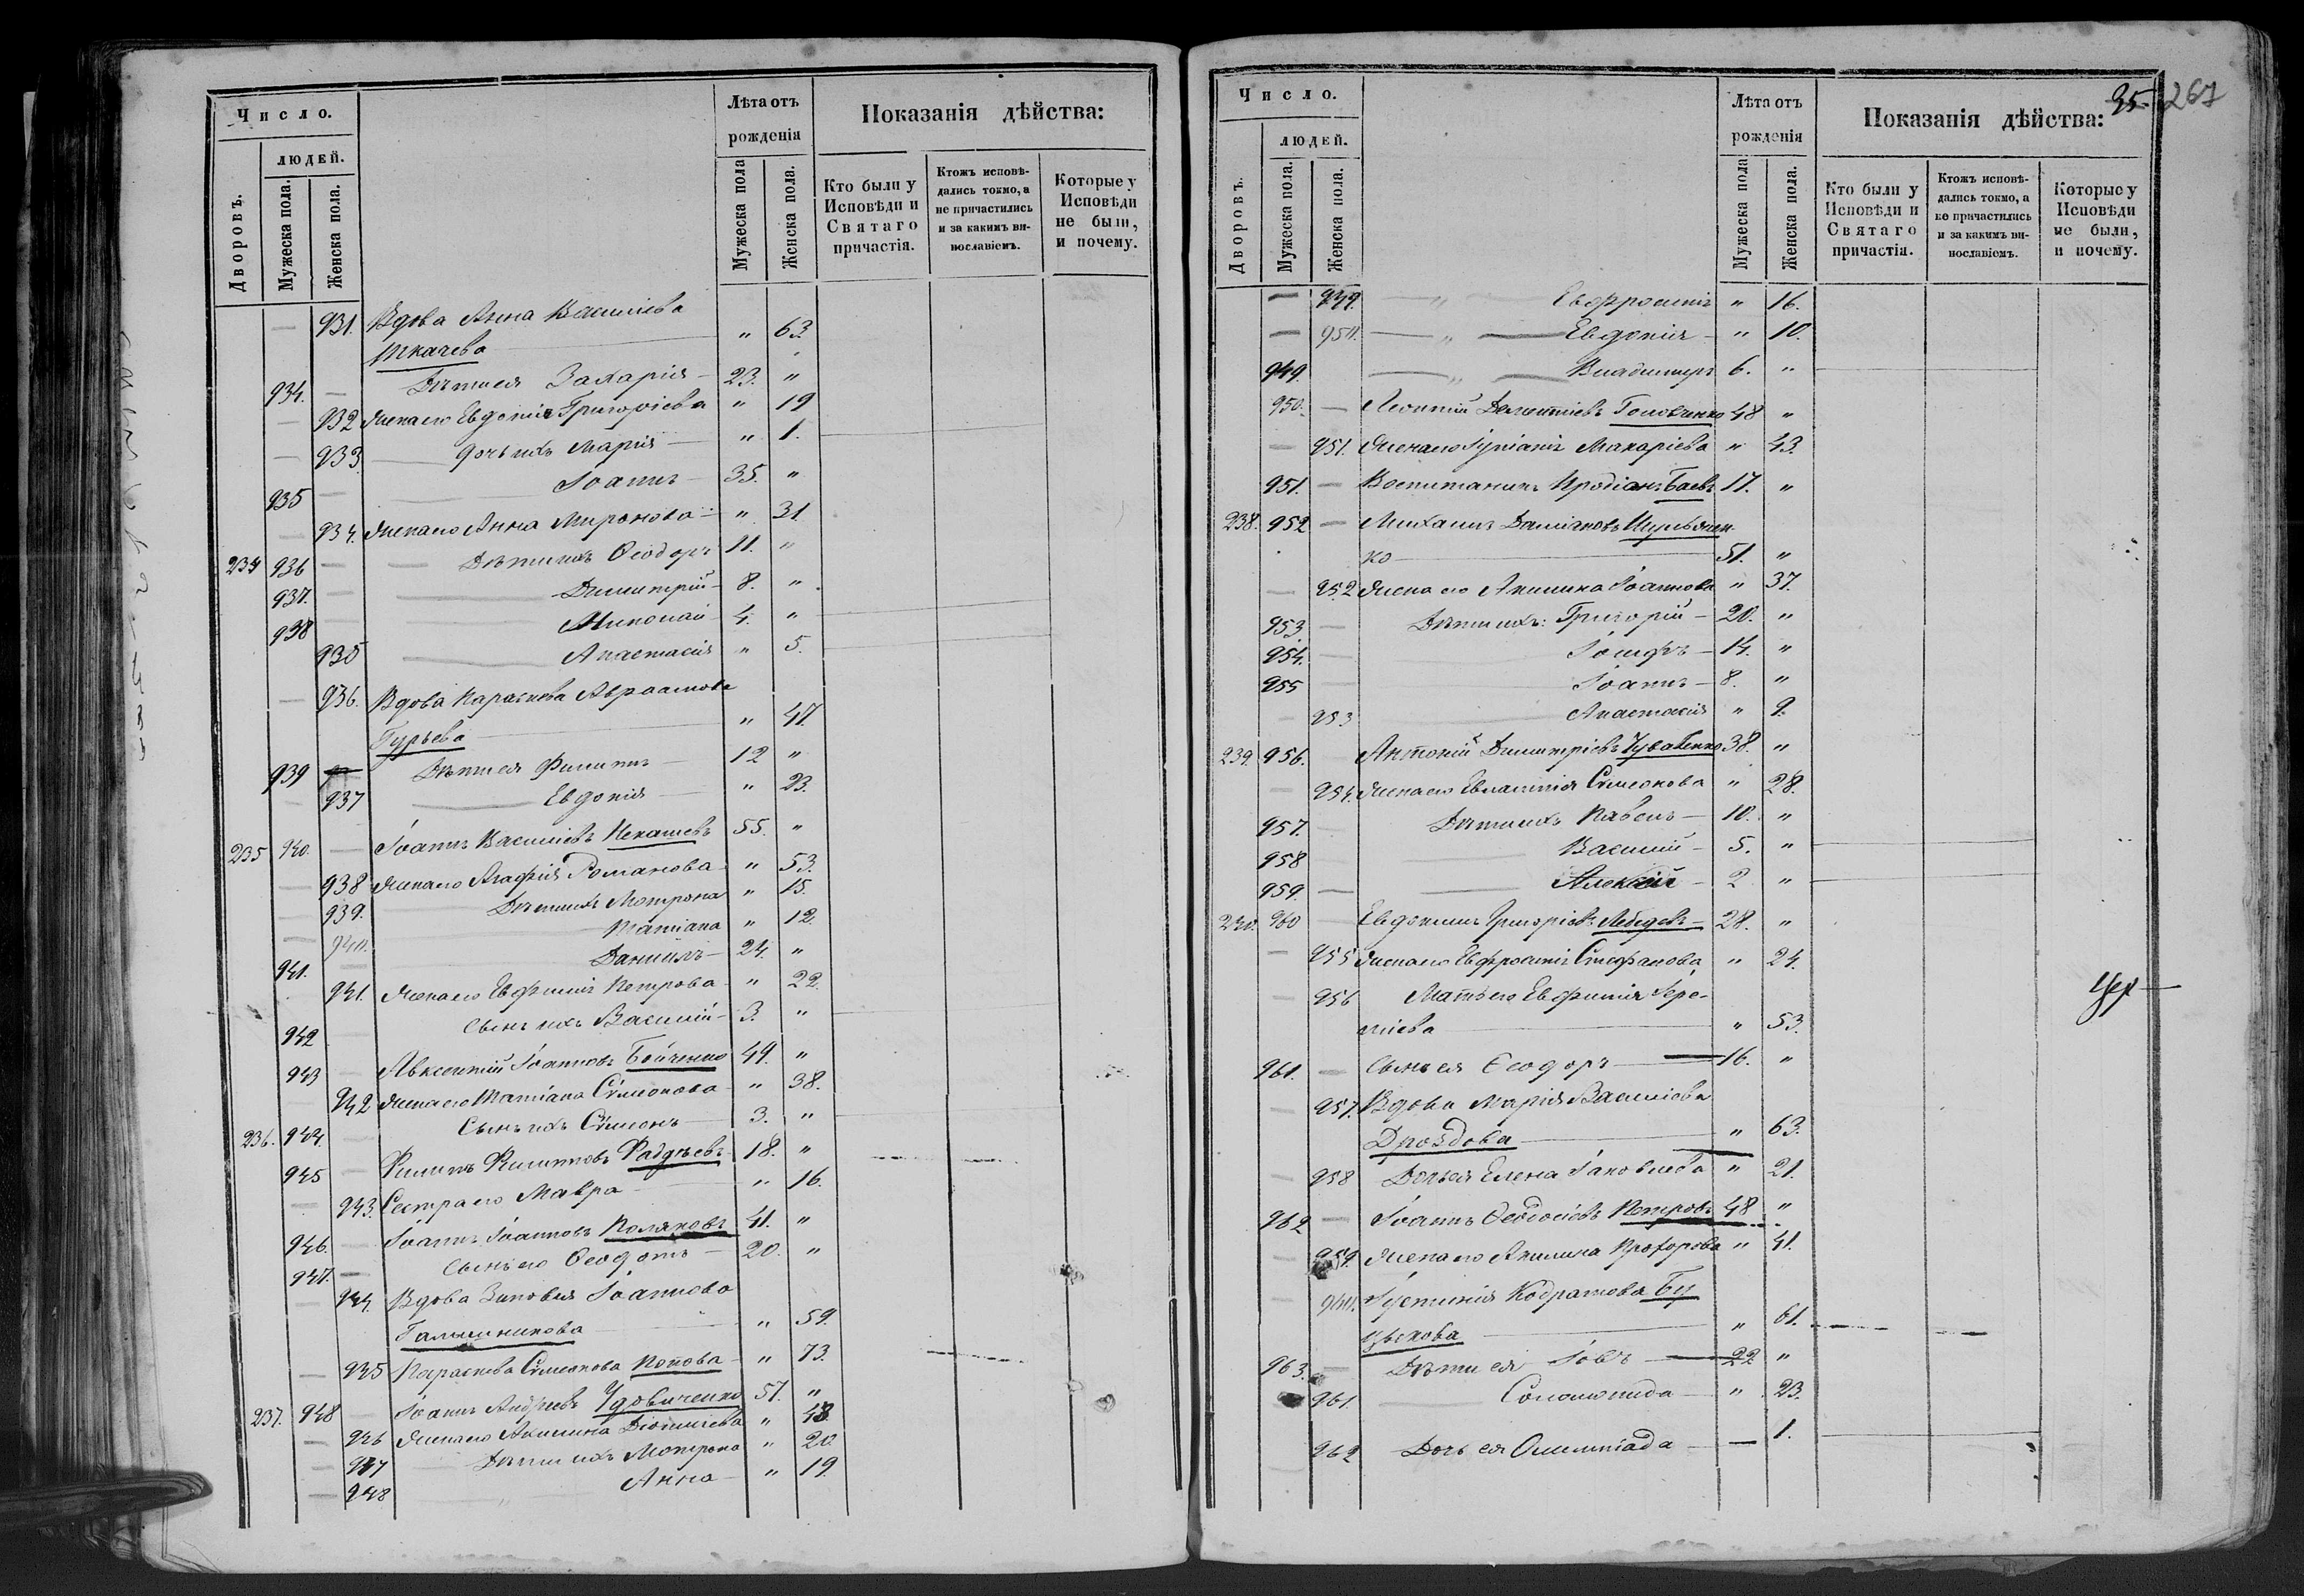 Число.
Лѣта отъ рожденія
Показанія дѣйства:
людей.
Дворовъ.
Мужеска пола.
Женска пола.
Мужеска пола
Женска пола.
Кто были у Исповѣди и Святаго причастія.
Ктожъ исповѣдались токмо, а не причастились и за какимъ винославіемъ.
Которые у Исповѣди не были, и почему.
— 931. Вдова Анна Василіева
Ткачева " 63.
934. — Дѣти ея Захарія 23. "
— 932 Жена его Евдокія Григоріева " 19
— 933 дочь ихъ Марія " 1.
935 — Іоаннъ 35. "
— 934. Жена его Анна Миронова " 31
234 936 — Дѣти ихъ Ѳеодоръ 11. "
937. — Димитрій 8. "
938 — Николай 4. "
935 Анастасія " 5.
— 936. Вдова Параскева Авраамова
Гурьева " 47
939 Дѣти ея Филиппъ 12 "
— 937 Евдокія " 23.
235 940. — Іоаннъ Василіевъ Некашевъ 55. "
— 938 Жена его Агафія Романова " 53.
— 939. Дѣти ихъ Мотрона " 15.
— 940. Татіана " 12.
941. — Даніилъ 24. "
941. Жена его Евфимія Петрова " 22.
942 — Сынъ ихъ Василій 3. "
943 — Авксентій Іоанновъ Бойченко 49. "
— 942 Жена его Татіана Сѵмеонова " 38.
236. 944. — Сынъ ихъ Сѵмеонъ 3. "
945 — Филиппъ Филипповъ Фадѣевъ 18. "
— 943. Сестра его Мавра " 16.
946. — Іоаннъ Іоанновъ Поляковъ 41. "
947. — Сынъ его Ѳеодотъ 20. "
— 944. Вдова Зиновія Іоаннова
Гальчиникова " 59.
— 945 Параскева Сѵмеонова Попова " 73.
237. 948 — Іоаннъ Андреевъ Удовиченко 57. "
— 946 Жена его Акилина Діонисіева " 48
— 947 Дѣти ихъ Мотрона " 20.
— 948 Анна " 19.
35. 267
Число.
Лѣта отъ рожденія
Показанія дѣйства:
людей.
Дворовъ.
Мужеска пола.
Женска пола.
Мужеска пола
Женска пола.
Кто были у Исповѣди и Святаго причастія.
Ктожъ исповѣдались токмо, а не причастились и за какимъ винославіемъ.
Которые у Исповѣди не были, и почему.
— 949. — " — Евфросинія " 16.
— 950. — " — Евдокія " 10.
949. — " — Владимиръ 6. "
950. — Леонтій Дементіевъ Головченко 48 "
— 951. Жена его Іуліанія Макаріева " 43.
951. — Воспитаникъ Иродіонъ Баевъ 17. "
238. 952 — Михаилъ Даміановъ Шульжен
ко 51. "
— 952 Жена его Акилина Іоаннова " 37.
953 — Дѣти ихъ: Григорій 20. "
954. — Іосифъ 14. "
955 Іоаннъ 8. "
— 953 Анастасія " 9.
239. 956. Антоній Димитріевъ Чуваленко 38. "
— 954. Жена его Евлампія Сѵмеонова " 28.
957. — Дѣти ихъ Павелъ 10. "
958 Василій 5. "
959. — Алексій 2 "
240. 960 Евдокимъ Григоріевъ Лебедевъ 28. "
— 955 Жена его Евфросинія Стефанова " 24.
— 956 Мать его Евфимія Іере-
міева " 53.
961. — Сынъ ея Ѳеодоръ 16. "
— 957. Вдова Марія Василіева
Дроздова " 63.
— 958 Дочь ея Елена Іаковлева " 21.
962 — Іоаннъ Ѳеодосіевъ Петровъ 48 "
— 959. Жена его Акилина Прохорова " 41.
— 960. Іустинія Кодратова Бу
цькова " 61.
963. — Дѣти ея Іовъ 22 "
961. Соломонида " 23.
— 962 Дочь ея Олимпіада — 1.